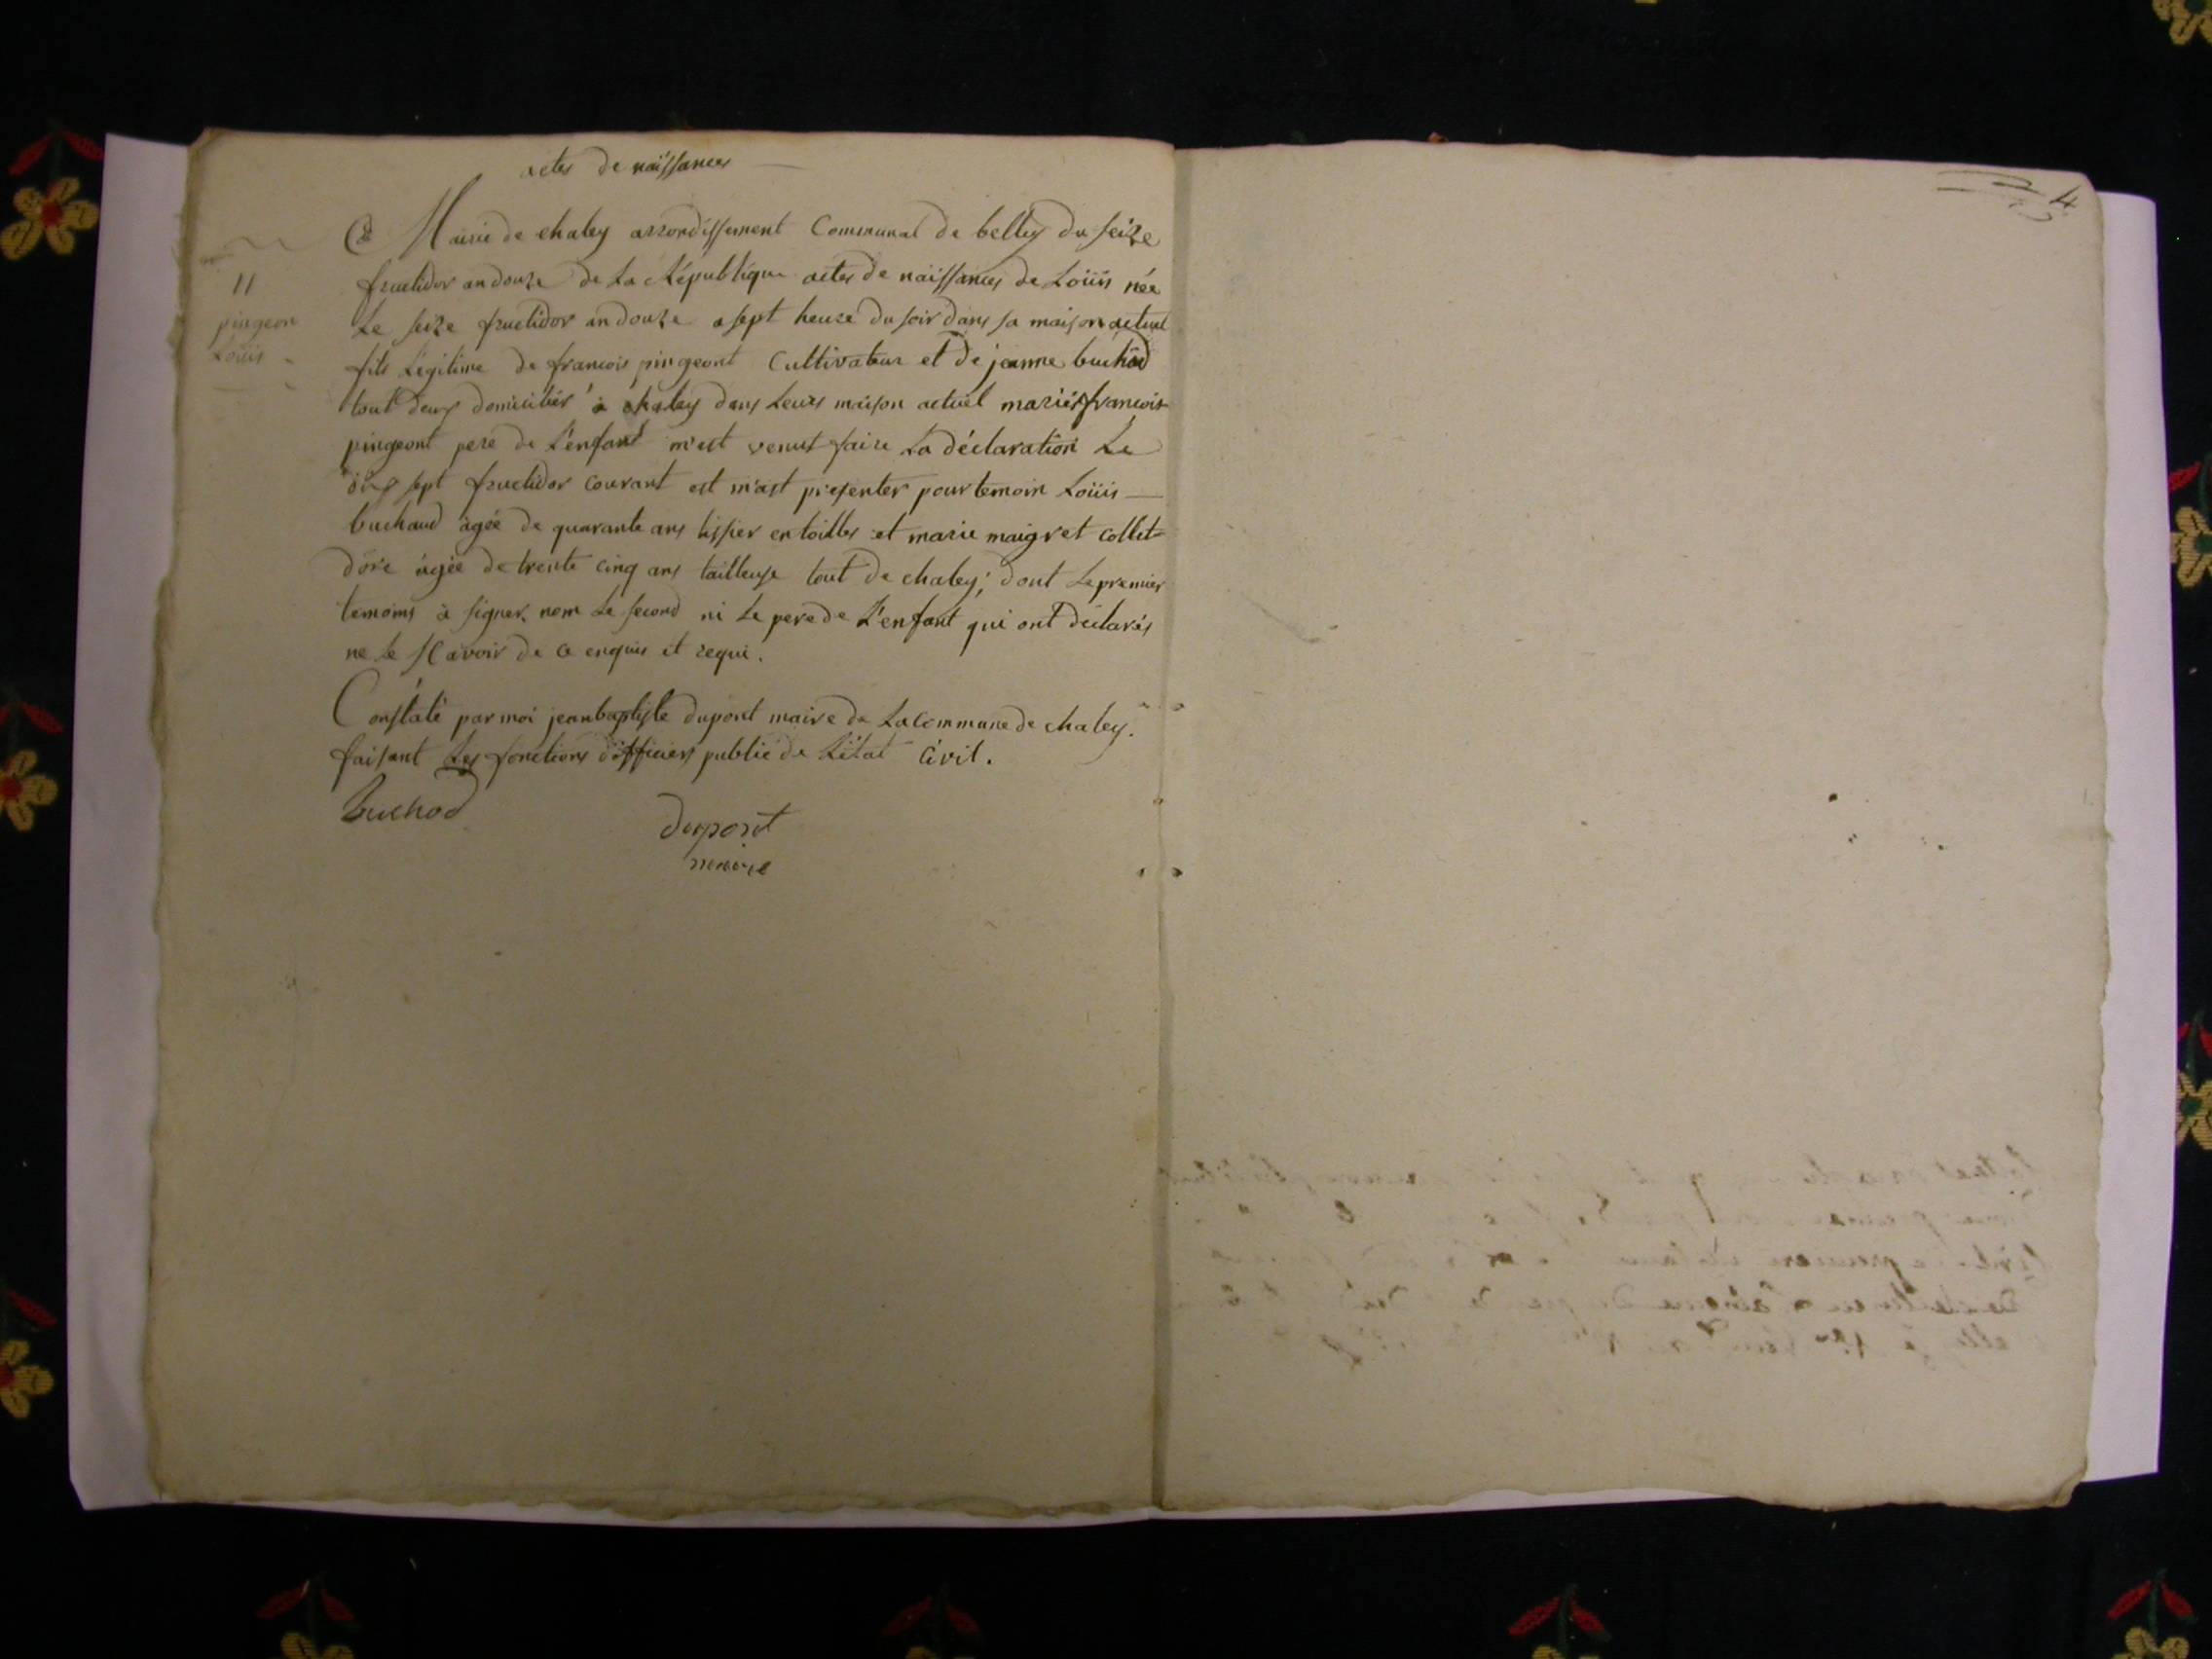 actes de naïssances
Mairie de chaley arrondissement Communal de belley du seize
fructidor an douze de La République actes de naïssances de Loüis née
Le seize fructidor an douze a sept heure du soir dans sa maison actuel
fils Légitime de francois pingeont Cultivateur et de jeanne buchod
tout deux domiciliés à chaley dans Leurs maison actuel mariés francois
pingeont pere de L'enfant m'est venut faire La déclaration Le
dix sept fructidor courant est m'ast presenter pour temoin Loüis
buchaud àgée de quarante ans tissier en toilles et marie maigret Collet=
dore àgée de trente cinq ans tailleuse tout de chaley; dont Le premier
temoins à signer nom Le second ni Le pere de L'enfant qui ont déclarés
ne Le scavoir de ce enquis et requi.
Constaté par moi jean baptiste dupont maire de La Commune de chaley.
faisant Les fonctions d'officiers public de L'état Civil.
Buchod
dupont
maire
11
pingeon
Loüis
4